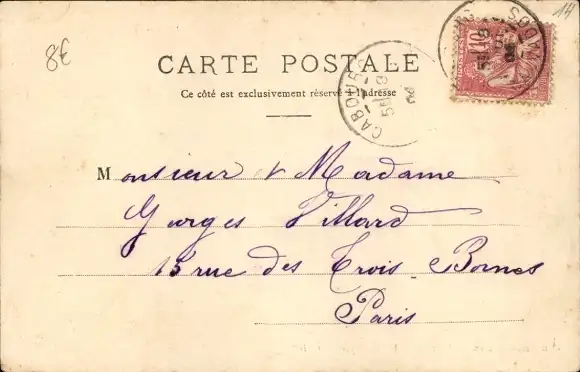 8€
14
CARTE POSTALE
Ce côté est exclusivement réservé à l'adresse
CABOURG
CALVADOS
Monsieur & Madame
Georges Villard
15 rue des Trois Bornes
Paris